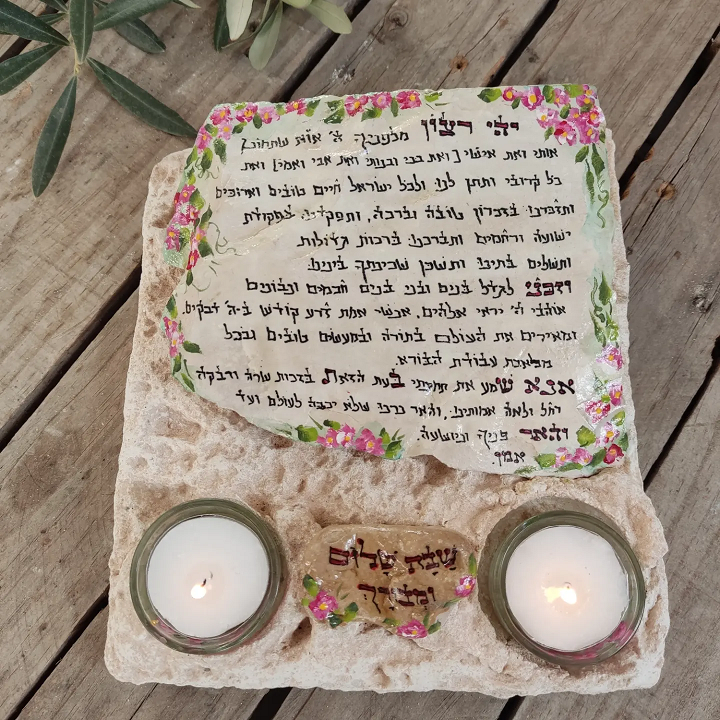 יהי רצון מלפניך ה׳ א׳׳א שתחונן
אותי ואת אישי [ואת בני ובנותי ואת אבי ואמי] ואת
כל קרובי ותתן לנו ולכל ישראל חיים טובים וארוכים
ותזכרנו בזכרון טובה וברכה, ותפקדנו בפקודת
ישועה ורחמים ותברכנו ברכות גדולות
ותשלים בתינו ותשכן שכינתך בינינו.
וזכני לגדל בנים ובני בנים חכמים ונבונים
אוהבי ה׳ יראי אלהים, אנשי אמת זרע קודש בה׳ דבקים.
ומאירים את העולם בתורה ובמעשים טובים ובכל
מלאכת עבודת הבורא.
אנא שמע את תחנתי בעת הזאת בזכות שרה ורבקה
רחל ולאה אמותינו, והאר נרנו שלא יכבה לעולם ועד
והאר פניך ונושעה.
אמן.
שבת שלום
ומבורך